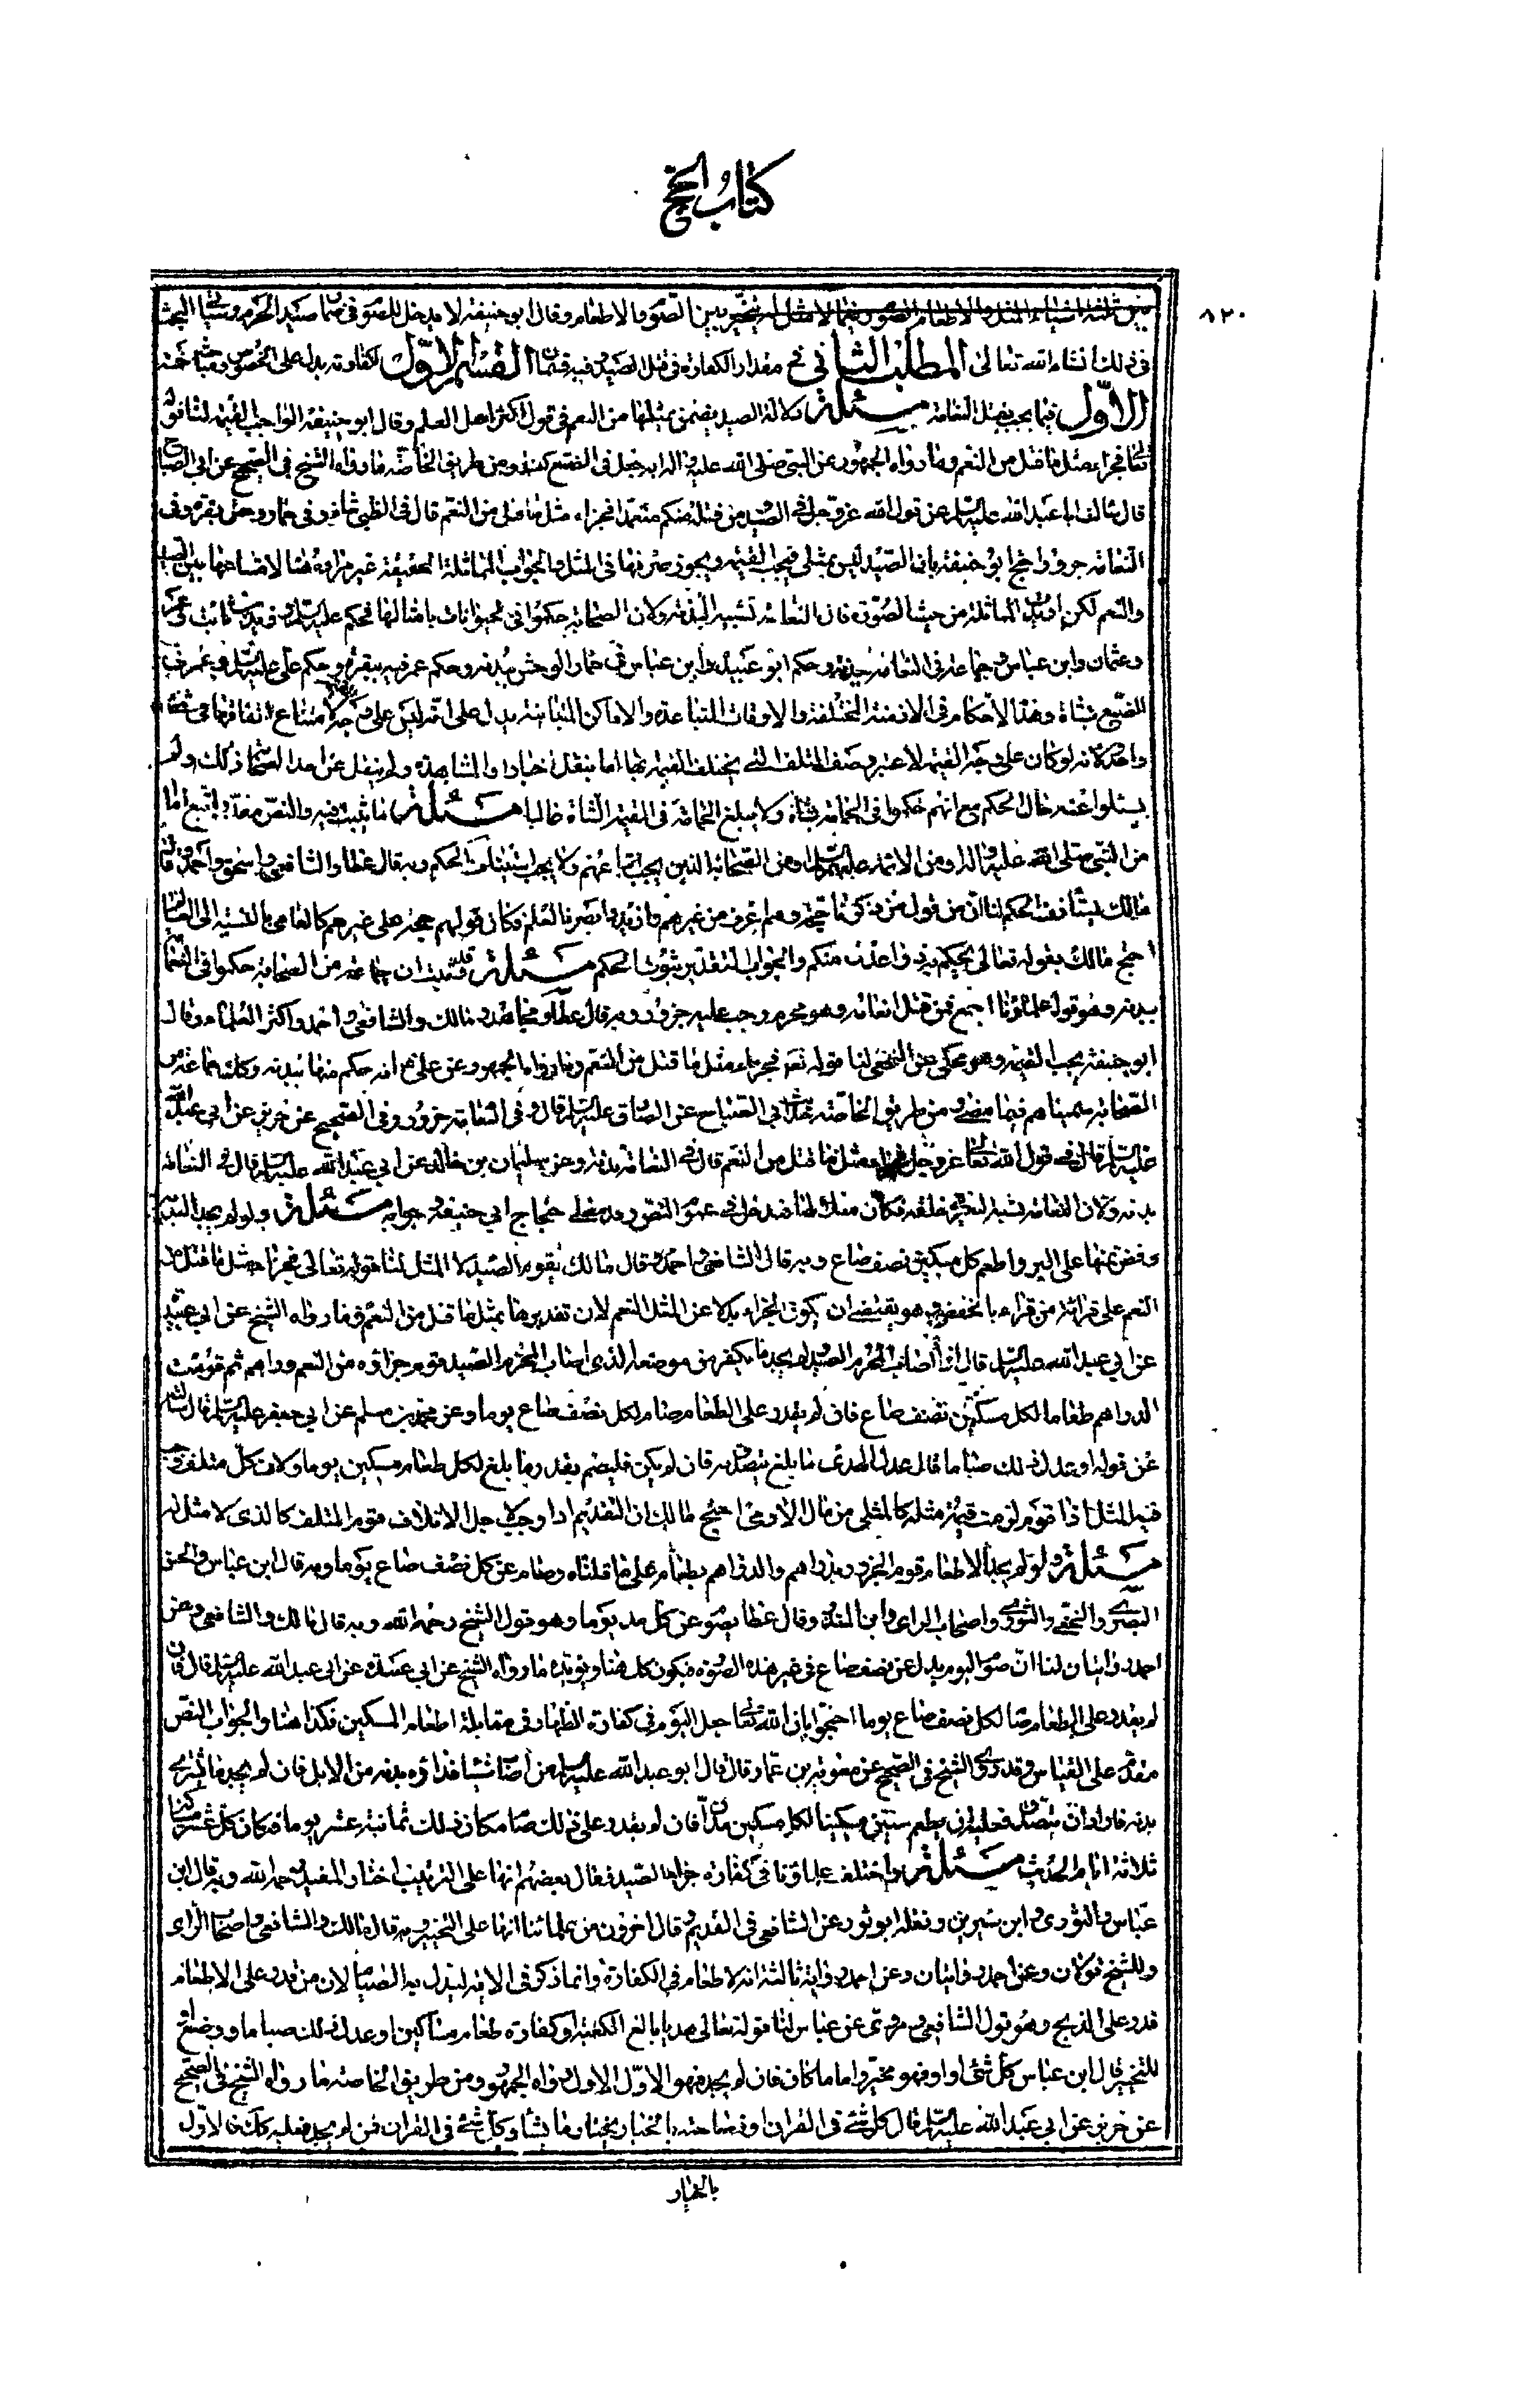 كتاب الحج
٨٢٠
بين ثلاثة اشياء المثل والاطعام والصوم فيما لا مثل له يتخير بين الصوم والاطعام وقال ابو حنيفة لا مدخل للصوم في ضمان صيد الحرم وسيأتي البحث
في ذلك انشاء الله تعالى المطلب الثاني في مقدار الكفارة في قتل الصيد وفيه قسمان القسم الاول لكفارته بدل على الخصوص ومباحثه خمسة
الاول فيما يجب بقتل النعامة مسئلة دلالة الصيد يضمن بمثلها من النعم في قول اكثر اهل العلم وقال ابو حنيفة الواجب القيمة لنا قوله
تعالى فجزاء مثل ما قتل من النعم وما رواه الجمهور عن النبي صلى الله عليه واله انه جعل في الضبع كبشا ومن طريق الخاصة ما رواه الشيخ في الصحيح عن ابي الصباح
قال سالت ابا عبد الله عليه السلم عن قول الله عز وجل في الصيد من قتله منكم متعمدا فجزاء مثل ما قتل من النعم قال في الظبي شاة وفي حمار وحش بقرة وفي
النعامة جزور واحتج ابو حنيفة بان الصيد ليس بمثلي فيجب القيمة ويجوز صرفها في المثل والجواب المماثلة الحقيقة غير مرادة هنا لامتناعها بين الصيد
والنعم لكن اريد المماثلة من حيث الصورة فان النعامة تشبه البدنة ولان الصحابة حكموا في الحيوانات بامثالها فحكم علي عليه السلم وزيد بن ثابت وعمر
وعثمان وابن عباس وجماعة في النعامة ببدنة وحكم ابو عبيدة وابن عباس في حمار الوحش ببدنة وحكم عمر فيه ببقرة وحكم علي عليه السلم وعمر في
الضبع بشاة وهذا الاحكام في الازمنة المختلفة والاوقات المتباعدة والاماكن المتباينة يدل على انه ليس على وجه القيمة لامتناع اتفاقها في قضية
واحدة ولانه لو كان على وجه القيمة لاعتبر وصف المتلف التي يختلف القيمة بها اما بنقل اخبار او المشاهدة ولم ينقل عن احد الصحابة ذلك ولم
يسئلوا عنه حال الحكم مع انهم حكموا في الحمامة بشاة ولا يبلغ الحمامة في القيمة الشاة غالبا مسئلة ما ثبت فيه والنص مقدر اتبع اما
من النبي صلى الله عليه واله او من الائمة عليهم السلم او من الصحابة الذين يجب اتباعهم ولا يجب استيناف الحكم وبه قال عطا والشافعي واسحق واحمد وقال
مالك يستأنف الحكم لنا ان من قول من ذكرنا حجة وهم اعرف من غيرهم وازيد بصيرة بالعلم فكان قولهم حجة على غيرهم كالعامي بالنسبة الى العالم
احتج مالك بقوله تعالى يحكم به ذوا عدل منكم والجواب التقدير ثبوت الحكم مسئلة قد ثبت ان جماعة من الصحابة حكموا في النعامة
ببدنة وهو قول علمائنا اجمع فمن قتل نعامة وهو محرم وجب عليه جزور وبه قال عطا ومجاهد ومالك والشافعي واحمد واكثر العلماء وقال
ابو حنيفة يجب القيمة وهو محكي عن النخعي لنا قوله تعالى فجزاء مثل ما قتل من النعم وما رواه الجمهور عن علي ع انه حكم فيها ببدنة وكذا جماعة من
الصحابة سميناهم فيما مضى ومن طريق الخاصة حديث ابي الصباح عن الصادق عليه السلم قال وفي النعامة جزور وفي الصحيح عن حريز عن ابي عبد الله
عليه السلم قال في قول الله تعالى عز وجل فجزاء مثل ما قتل من النعم قال في النعامة بدنة وعن سليمان بن خالد عن ابي عبد الله عليه السلم قال في النعامة
بدنة ولان النعامة يشبه البعير في خلقته فكان مثلا لها فيدخل في عموم النص وقد مضى احتجاج ابي حنيفة وجوابه مسئلة ولو لم يجد البدنة
وفض ثمنها على البر واطعم كل مسكين نصف صاع وبه قال الشافعي واحمد وقال مالك يقوم الصيد لا المثل لنا قوله تعالى فجزاء مثل ما قتل من
النعم على قراءة من قراء بالخفض وهو يقتضي ان يكون الجزاء بدلا عن المثل النعم لان تقديرها بمثل ما قتل من النعم وما رواه الشيخ عن ابي عبيدة
عن ابي عبد الله عليه السلم قال اذا اصاب المحرم الصيد ولم يجد ما يكفر من موضعه الذي اصاب المحرم الصيد قوم جزاؤه من النعم دراهم ثم قومت
الدراهم طعاما لكل مسكين نصف صاع فان لم يقدر على الطعام صام لكل نصف صاع يوما وعن محمد بن مسلم عن ابي جعفر عليه السلم قال سالته
عن قوله او عدل ذلك صياما قال عدل الهدى ما بلغ يتصدق به فان لم يكن فليصم بقدر ما بلغ لكل طعام مسكين يوما ولان كل متلف وجب
فيه المثل اذا قوم لزمت قيمة مثله كالمثلي من مال الادمي احتج مالك ان التقديم اذا وجب لاجل الاتلاف قوم المتلف كالذي لا مثل له
مسئلة ولو لم يجد الاطعام قوم الجزور بدراهم والدراهم بطعام على ما قلناه وصام عن كل نصف صاع يوما وبه قال ابن عباس والحسن
البصري والنخعي والثوري واصحاب الراى وابن المنذر وقال عطا يصوم عن كل مد يوما وهو قول الشيخ رحمه الله وبه قال مالك والشافعي وعن
احمد روايتان لنا ان صوم اليوم بدل عن نصف صاع في غير هذه الصورة فيكون كك هنا ويؤيده ما رواه الشيخ عن ابي عبيدة عن ابي عبد الله عليه السلم قال فان
لم يقدر على الطعام صام لكل نصف صاع يوما احتجوا بان الله تعالى جعل اليوم في كفارة الظهار في مقابلة اطعام المسكين فكذا هنا والجواب النص
مقدم على القياس وقد روى الشيخ في الصحيح عن معوية بن عمار قال قال ابو عبد الله عليه السلم من اصاب شيئا فداؤه بدنة من الابل فان لم يجد ما يشترى
بدنة فاراد ان يتصدق فعليه ان يطعم ستين مسكينا لكل مسكين مدا فان لم يقدر على ذلك صام مكان ذلك ثمانية عشر يوما مكان كل عشرة مساكين
ثلاثة ايام الحديث مسئلة واختلف علماؤنا في كفارة جزاء الصيد فقال بعضهم انها على الترتيب اختاره المفيد رحمه الله وبه قال ابن
عباس والثوري وابن سيرين ونقله ابو ثور عن الشافعي في القديم وقال اخرون من علمائنا انها على التخيير وبه قال مالك والشافعي واصحاب الراى
وللشيخ قولان وعن احمد روايتان وعن احمد رواية ثالثة انه لا طعام في الكفارة وانما ذكر في الاية ليعدل به الصيام لان من قدر على الاطعام
قدر على الذبح وهو قول الشافعي ومروى عن عباس لنا قوله تعالى هديا بالغ الكعبة او كفارة طعام مساكين او عدل ذلك صياما واو وضع
للتخيير قال ابن عباس كل شئ او او فهو مخير واما ما كان فان لم يجد فهو الاول الاول رواه الجمهور ومن طريق الخاصة ما رواه الشيخ في الصحيح
عن حريز عن ابي عبد الله عليه السلم قال كل شئ في القران او فصاحبه بالخيار يختار ما يشاء وكل شئ في القران فمن لم يجد فعليه كذا فالاول
بالخيار